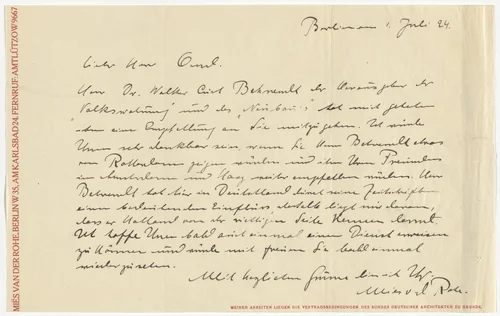 MIËS VAN DER ROHE, BERLIN W 35, AM KARLSBAD 24, FERNRUF: AMT LÜTZOW 9667
Berlin am 1. Juli 24.
Lieber Herr Oud.
Herr Dr. Walter Curt Behrendt der Herausgeber der
Volkswohnung und des "Neubaus" hat mich gebeten
ihm eine Empfehlung an Sie mitzugeben. Ich würde
Ihnen sehr dankbar sein, wenn Sie Herrn Behrendt etwas
von Rotterdam zeigen würden und ihn Ihren Freunden
in Amsterdam und Haag weiter empfehlen würden. Herr
Behrendt hat hier in Deutschland durch seine Zeitschriften
einen bedeutenden Einfluss, deshalb liegt mir daran,
dass er Holland von der richtigen Seite kennen lernt.
Ich hoffe Ihnen bald auch einmal einen Dienst erweisen
zu können und würde mich freuen Sie bald einmal
wiederzusehen.
Mit herzlichen Grüssen bin ich Ihr
Mies v. d. Rohe.
MEINEN ARBEITEN LIEGEN DIE VERTRAGSBEDINGUNGEN DES BUNDES DEUTSCHER ARCHITEKTEN ZU GRUNDE.